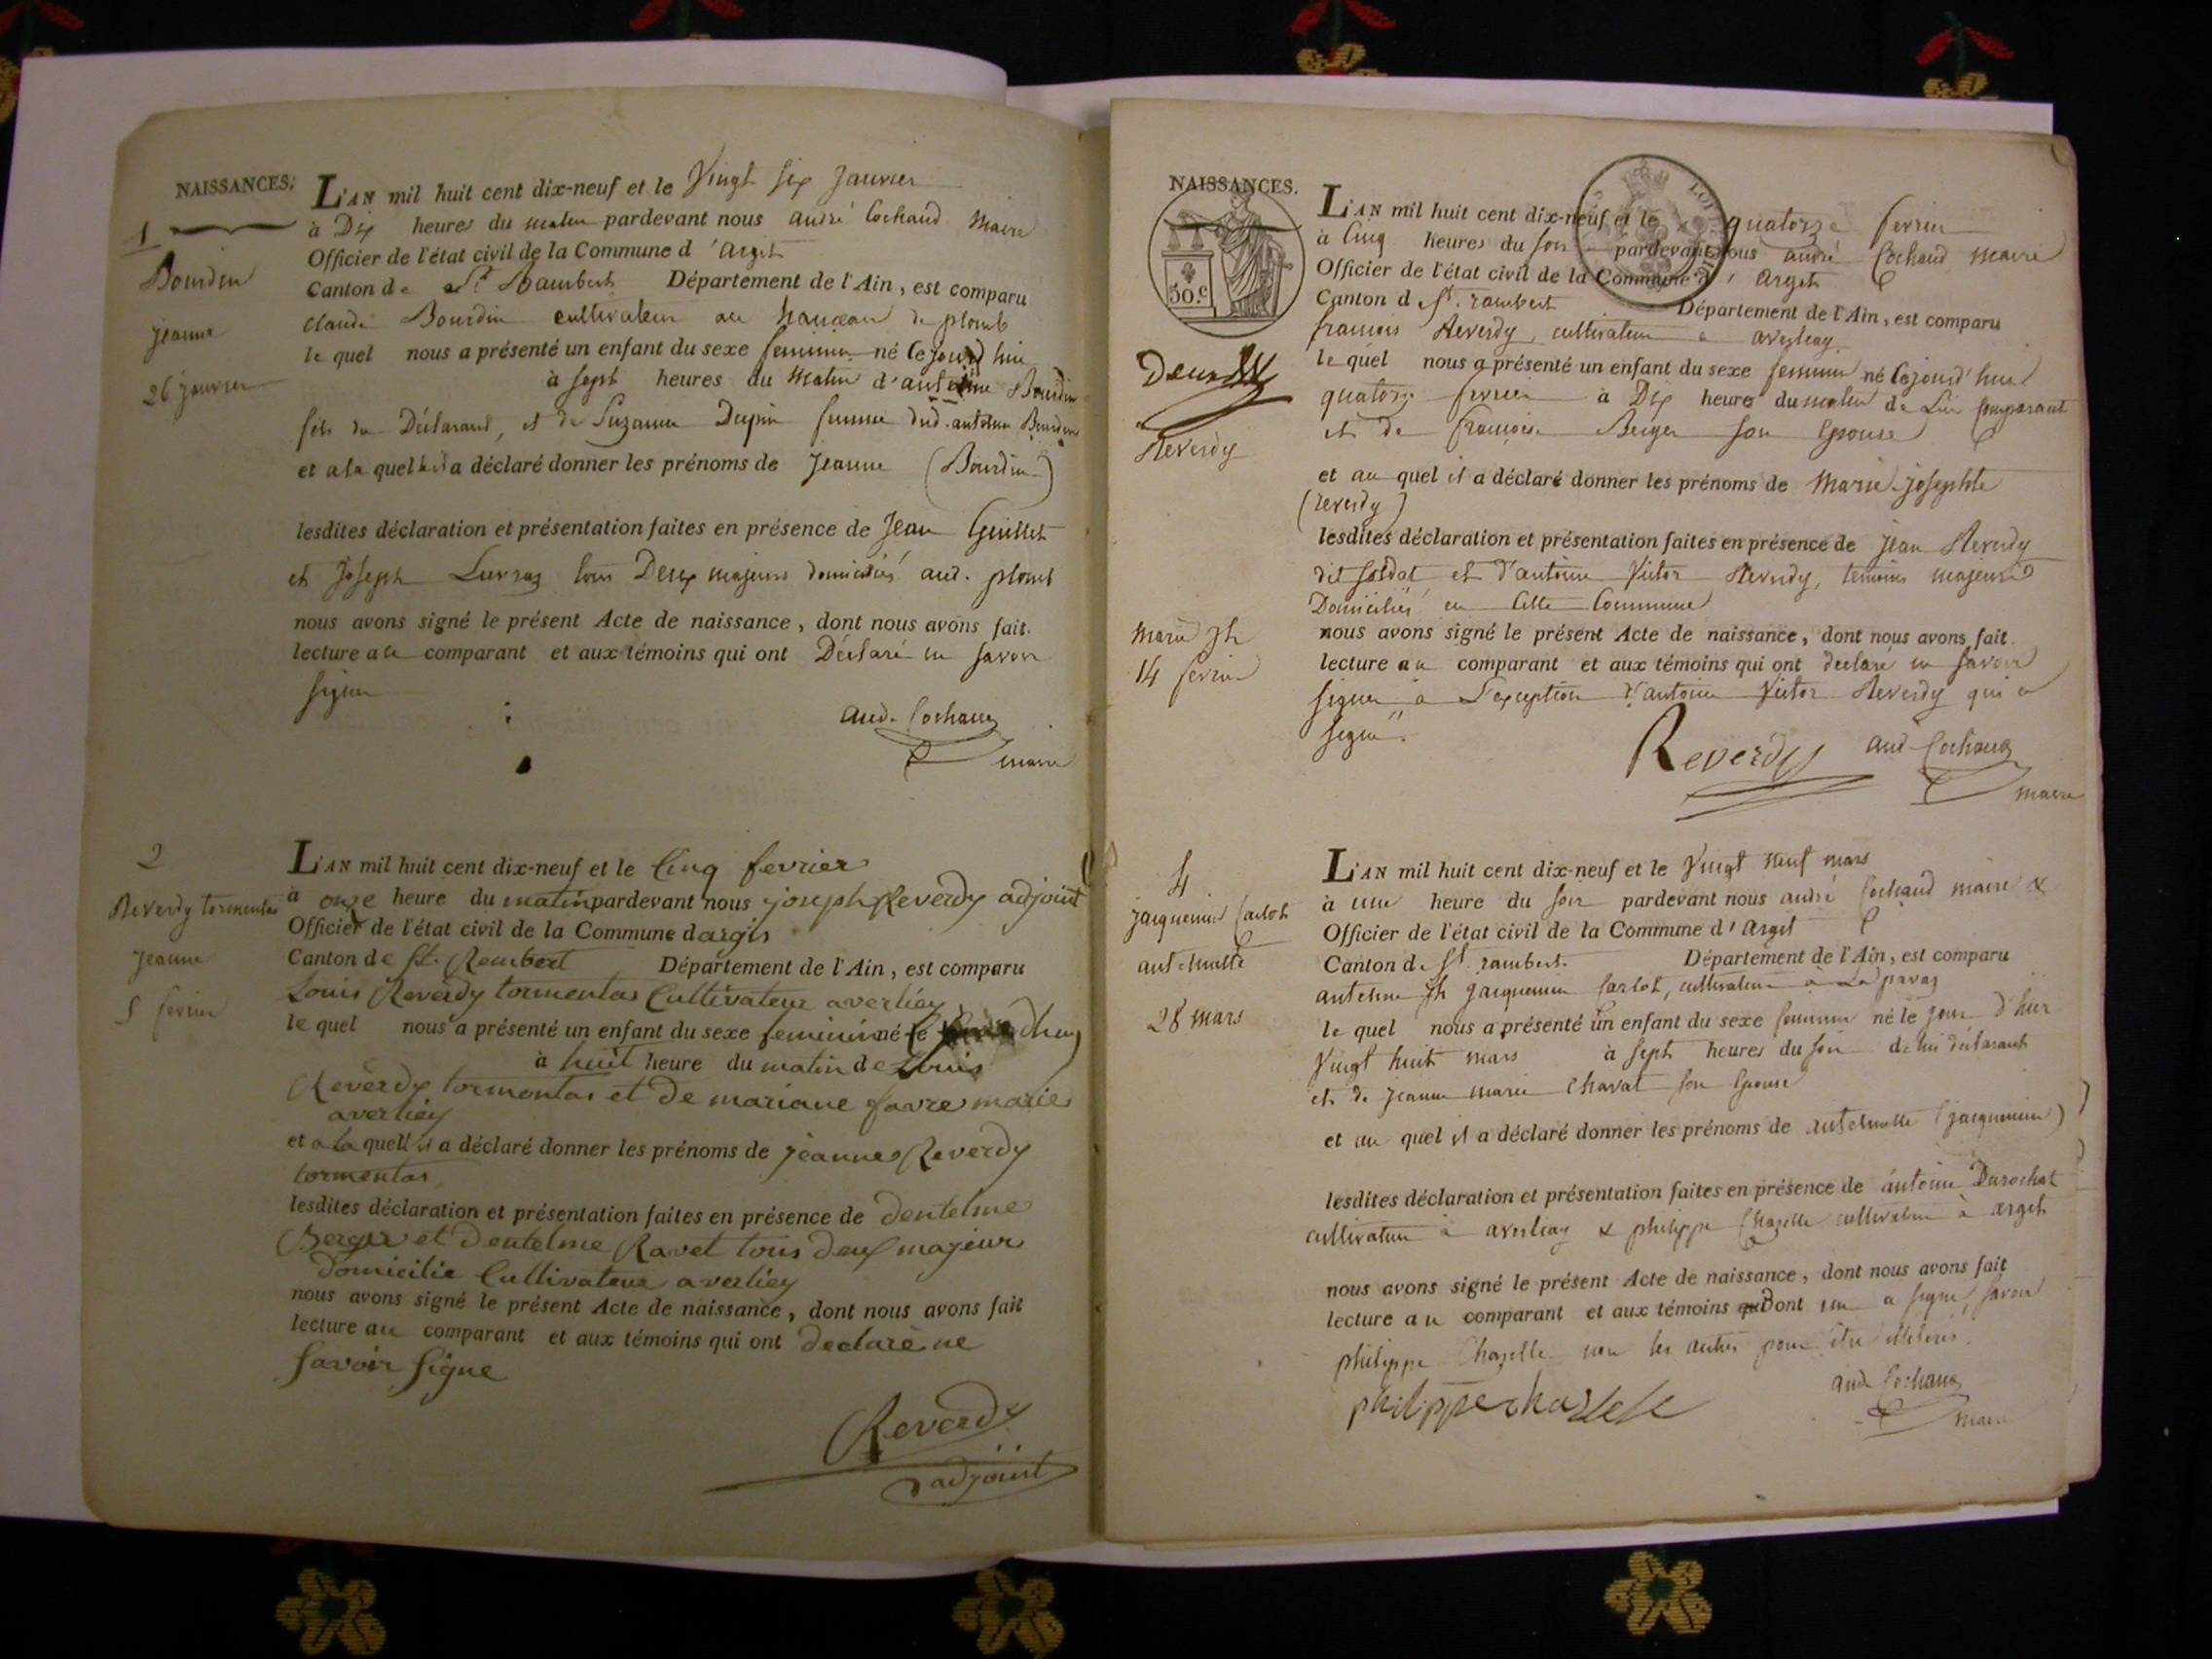 NAISSANCES.
1
Bourdin
Jeanne
26 janvier
L'AN mil huit cent dix-neuf et le Vingt six Janvier
à Dix heures du matin pardevant nous andré Cochaud Maire
Officier de l'état civil de la Commune d'argit
Canton de St. Rambert Département de l'Ain, est comparu
claude Bourdin cultivateur au hameau de plomb
le quel nous a présenté un enfant du sexe feminin né le jourd hui
à sept heures du Matin d'antelme Bourdin
fils du Déclarant, et de Suzanne Dupin femme dud. antelme Bourdin
et a la quelle il a déclaré donner les prénoms de Jeanne (Bourdin)
lesdites déclaration et présentation faites en présence de Jean Guillet
et Joseph Luvraz tous Deux majeurs domiciliés aud. plomb
nous avons signé le présent Acte de naissance, dont nous avons fait
lecture au comparant et aux témoins qui ont Déclaré ne savoir
signer
and. Cochaud
maire
2
Reverdy tormentas
Jeanne
5 fevrier
L'AN mil huit cent dix-neuf et le Cinq fevrier
à onze heure du matin pardevant nous joseph Reverdy adjoint
Officier de l'état civil de la Commune dargis
Canton de St. Rembert Département de l'Ain, est comparu
Louis Reverdy tormentas Cultivateur a verliey
le quel nous a présenté un enfant du sexe feminin né le dhuy
à huit heure du matin de Louis
Reverdy tormontas et De mariane favre mariés
a verliey
et a la quelle il a déclaré donner les prénoms de jeanne Reverdy
tormentas
lesdites déclaration et présentation faites en présence de Dentelme
Berger et Dentelme Ravet tous deux majeur
Domicilie Cultivateur a verliey
nous avons signé le présent Acte de naissance, dont nous avons fait
lecture au comparant et aux témoins qui ont declaré ne
Savoir Signe
Reverdy
adjoint
NAISSANCES.
50.c
Reverdy
Marie Jh
14 fevrier
L'AN mil huit cent dix-neuf et le quatorze fevrier
à Cinq heures du soir pardevant nous andré Cochaud maire
Officier de l'état civil de la Commune d'argit
Canton d St. rambert Département de l'Ain, est comparu
francois Reverdy, cultivateur a averliay
le quel nous a présenté un enfant du sexe feminin né cejourd'hui
quatorze fevrier à Dix heures du matin de Lui Comparant
et de francoise Berger son Epouse
et au quel il a déclaré donner les prénoms de Marie-josephte
(reverdy)
lesdites déclaration et présentation faites en présence de jean Reverdy
dit soldat et d'antoine Victor Reverdy, temoins majeurs
Domiciliés en Cette Commune
nous avons signé le présent Acte de naissance, dont nous avons fait
lecture au comparant et aux témoins qui ont declaré ne savoir
signer a L'exception d'antoine Victor Reverdy qui a
signé.
Reverdy and. Cochaud
maire
4
jacquemin Carlot
antelmette
28 mars
L'AN mil huit cent dix-neuf et le Vingt neuf mars
à une heure du soir pardevant nous andré Cochaud maire &
Officier de l'état civil de la Commune d'argit
Canton d. St. rambert. Département de l'Ain, est comparu
antelme Jh jacquemin Carlot, cultivateur à La pavaz
le quel nous a présenté un enfant du sexe feminin né le jour d'hier
Vingt huit mars à sept heures du soir de lui déclarant
et de jeanne marie Chavat son Epouse
et au quel il a déclaré donner les prénoms de antelmette (jacquemin)
lesdites déclaration et présentation faites en présence de antoine Durochat
cultivateur à averliay & philippe Chazelle cultivateur à argit
nous avons signé le présent Acte de naissance, dont nous avons fait
lecture au comparant et aux témoins qui Dont un a signé, savoir
philippe Chazelle non les autres pour être illiterés.
philippe chazelle
and. Cochaud
maire